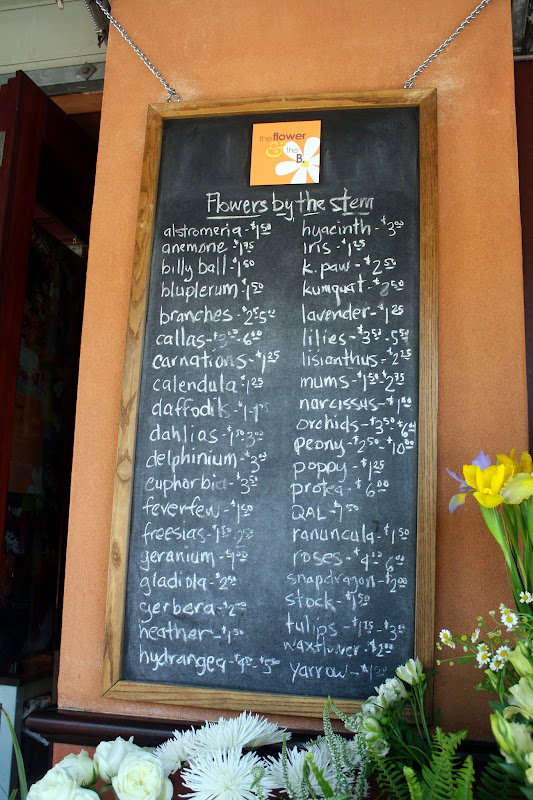 the flower
& the
B.
Flowers by the stem
alstromeria - $1.50
anemone - $1.75
billy ball - $1.50
bluplerum - $1.50
branches - $2 - 5.00
callas - $3.00 - 6.00
carnations - $1.25
calendula - $1.25
daffodils -
dahlias - $1.50 3.00
delphinium - $3.00
euphorbia - $3.50
feverfew - $1.50
freesias - $1.50
geranium - $4.00
gladiola - $2.50
gerbera - $2.00
heather - $1.50
hydrangea - $4.50 - $5.50
hyacinth - $3.00
iris - $1.25
k. paw - $2.50
kumquat - $2.50
lavender - $1.25
lilies - $3.50 - 5.50
lisianthus - $2.25
mums - $1.50 - $2.75
narcissus - $1.00
orchids - $3.50 - $6.00
peony - $2.50 - $10.00
poppy - $1.25
protea - $6.00
QAL - $1.50
ranuncula - $1.50
roses - $4.00 6.00
snapdragon - $2.00
stock - $1.50
tulips - $1.75 - $3.00
waxflower - $2.00
yarrow - $1.50